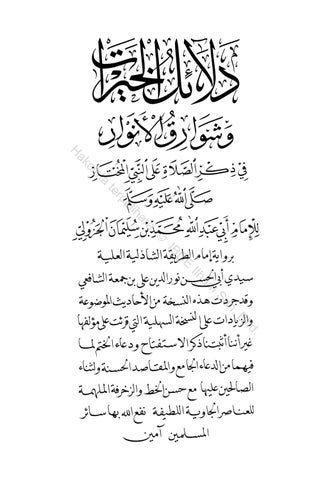 دَلَائِلُ الْخَيْرَاتِ
وَشَوَارِقُ الْأَنْوَارِ
فِي ذِكْرِ الصَّلَاةِ عَلَى النَّبِيِّ الْمُخْتَارِ
صَلَّى اللّٰهُ عَلَيْهِ وَسَلَّمَ
لِلْإِمَامِ أَبِي عَبْدِ اللّٰهِ مُحَمَّدِ بْنِ سُلَيْمَانَ الْجَزُولِيِّ
برواية إمام الطريقة الشاذلية العلية
سيدي أبي الحسن نور الدين علي بن جمعة الشافعي
وقد جردت هذه النسخة من الأحاديث الموضوعة
والزيادات على النسخة السهلية التي قرئت على مؤلفها
غير أننا أثبتنا ذكر الاستفتاح ودعاء الختم لما
فيهما من الدعاء الجامع والمقاصد الحسنة ولثناء
الصالحين عليها مع حسن الخط والزخرفة الملهمة
للعناصر الجاوية اللطيفة نفع الله بها سائر
المسلمين آمين